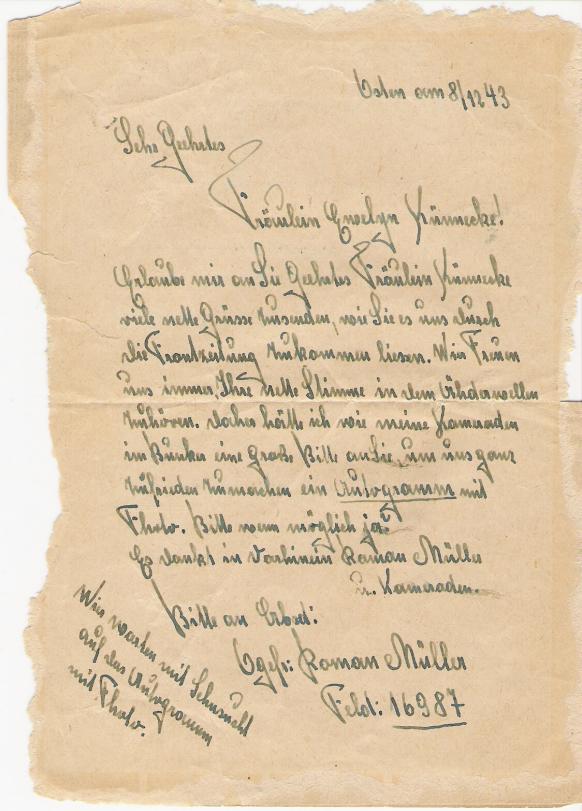 Osten am 8/12 43
Sehr Geehrtes
Fräulein Ewelyn Künnecke!
Erlaube mir an Sie Geehrtes Fräulein Künnecke
viele nette Grüsse zusenden, wie Sie es uns durch
die Frontzeitung zukommen liesen. Wir Freuen
uns immer, Ihre nette Stimme in dem
zuhören. Daher hätte ich wie meine Kameraden
im Bunker eine große Bitte an Sie, um uns ganz
zufrieden zumachen ein Autogramm mit
Photo. Bitte wenn möglich ja?
Es dankt in Vorhinein Roman Müller
u. Kameraden.
Bitte an
Ogefr: Roman Müller
Feld: 16987
Wir warten mit Sehnsucht
auf das Autogramm
mit Photo.